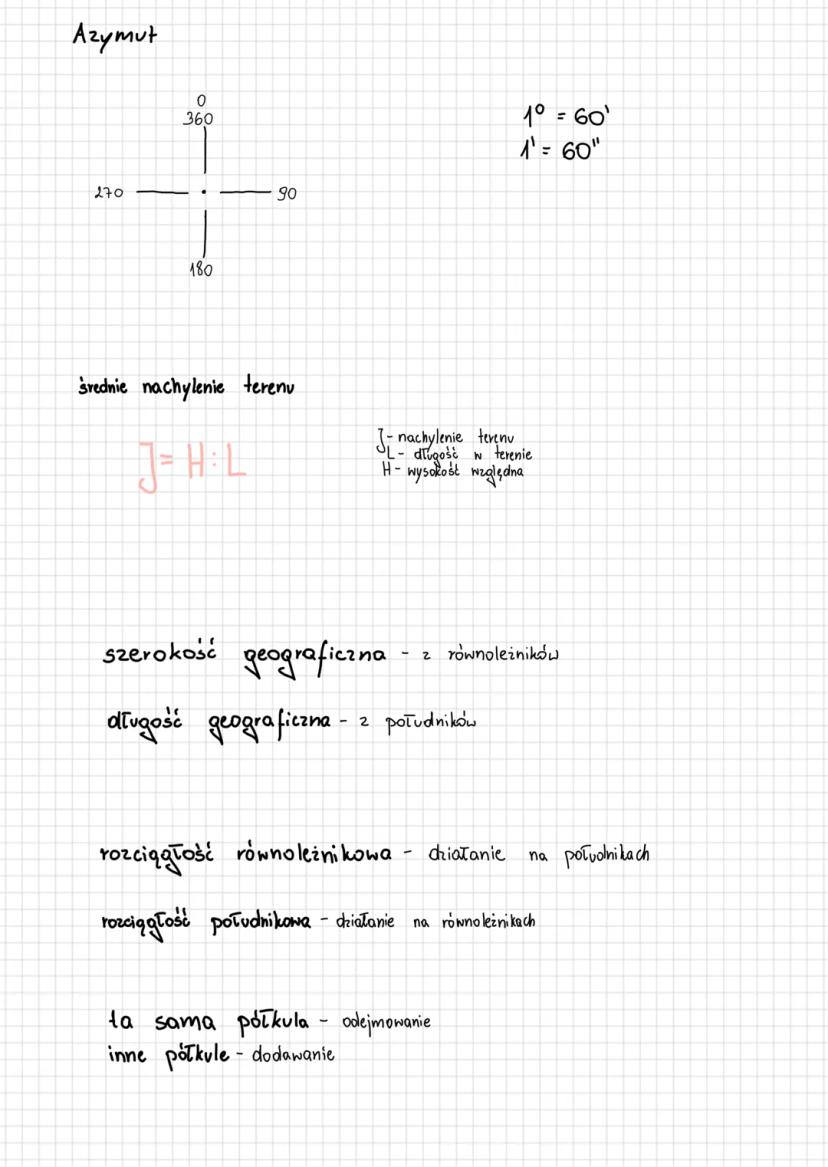 Azymut
0
360
1° = 60'
1' = 60"
270
90
180
średnie nachylenie terenu
J = H : L
J - nachylenie terenu
L - długość w terenie
H - wysokość względna
szerokość geograficzna - z równoleżników
długość geograficzna - z południków
rozciągłość równoleżnikowa - działanie na południkach
rozciągłość południkowa - działanie na równoleżnikach
ta sama półkula - odejmowanie
inne półkule - dodawanie